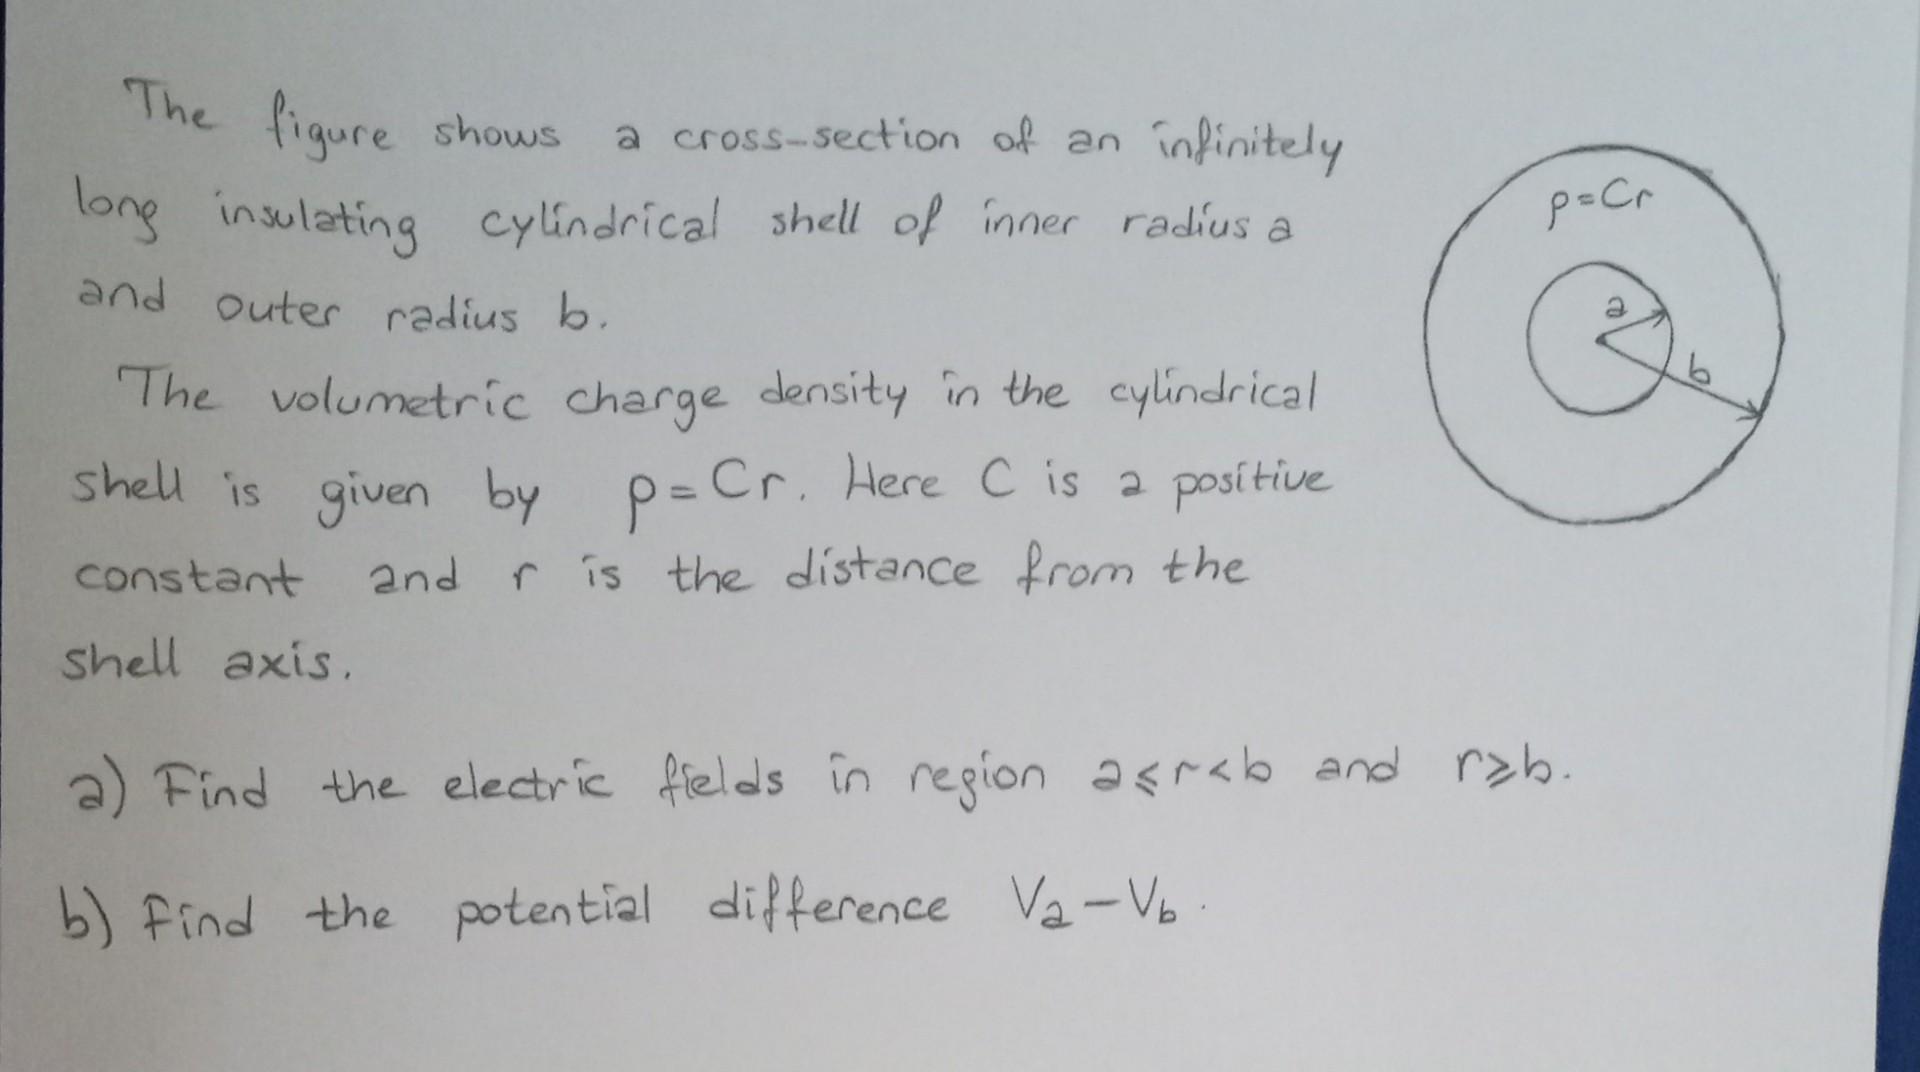 The figure shows a cross-section of an infinitely
long insulating cylindrical shell of inner radius a
and outer radius b.
The volumetric charge density in the cylindrical
shell is given by ρ=Cr. Here C is a positive
constant and r is the distance from the
shell axis.
a) Find the electric fields in region a⩽r<b and r⩾b.
b) Find the potential difference Va-Vb.
ρ=Cr
a
b